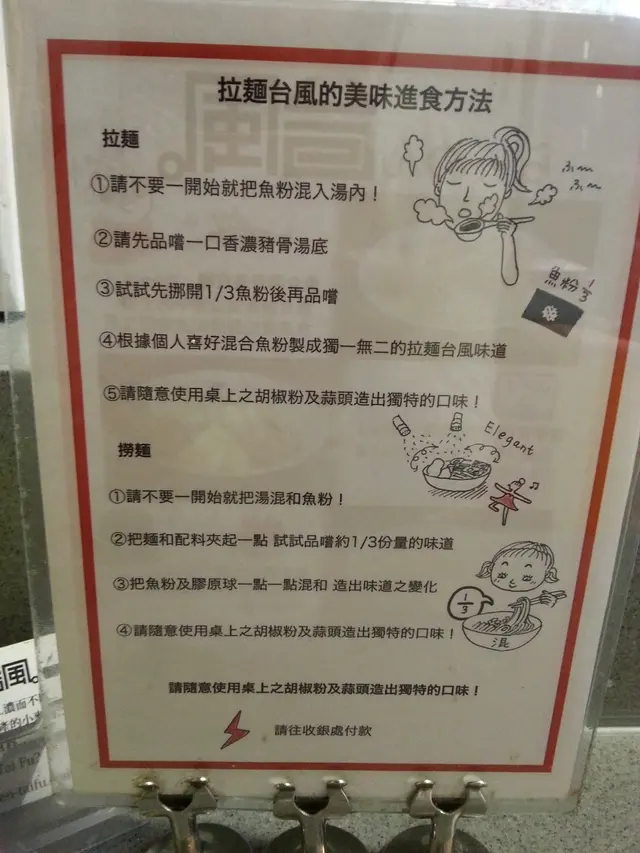 拉麵台風的美味進食方法
拉麵
①請不要一開始就把魚粉混入湯內！
②請先品嚐一口香濃豬骨湯底
③試試先挪開1/3魚粉後再品嚐
④根據個人喜好混合魚粉製成獨一無二的拉麵台風味道
⑤請隨意使用桌上之胡椒粉及蒜頭造出獨特的口味！
ふ〜
ふ〜
魚粉 1/3
Elegant
撈麵
①請不要一開始就把湯混和魚粉！
②把麵和配料夾起一點 試試品嚐約1/3份量的味道
③把魚粉及膠原球一點一點混和 造出味道之變化
④請隨意使用桌上之胡椒粉及蒜頭造出獨特的口味！
1/3
混
請隨意使用桌上之胡椒粉及蒜頭造出獨特的口味！
請往收銀處付款
風。
濃面不
的小